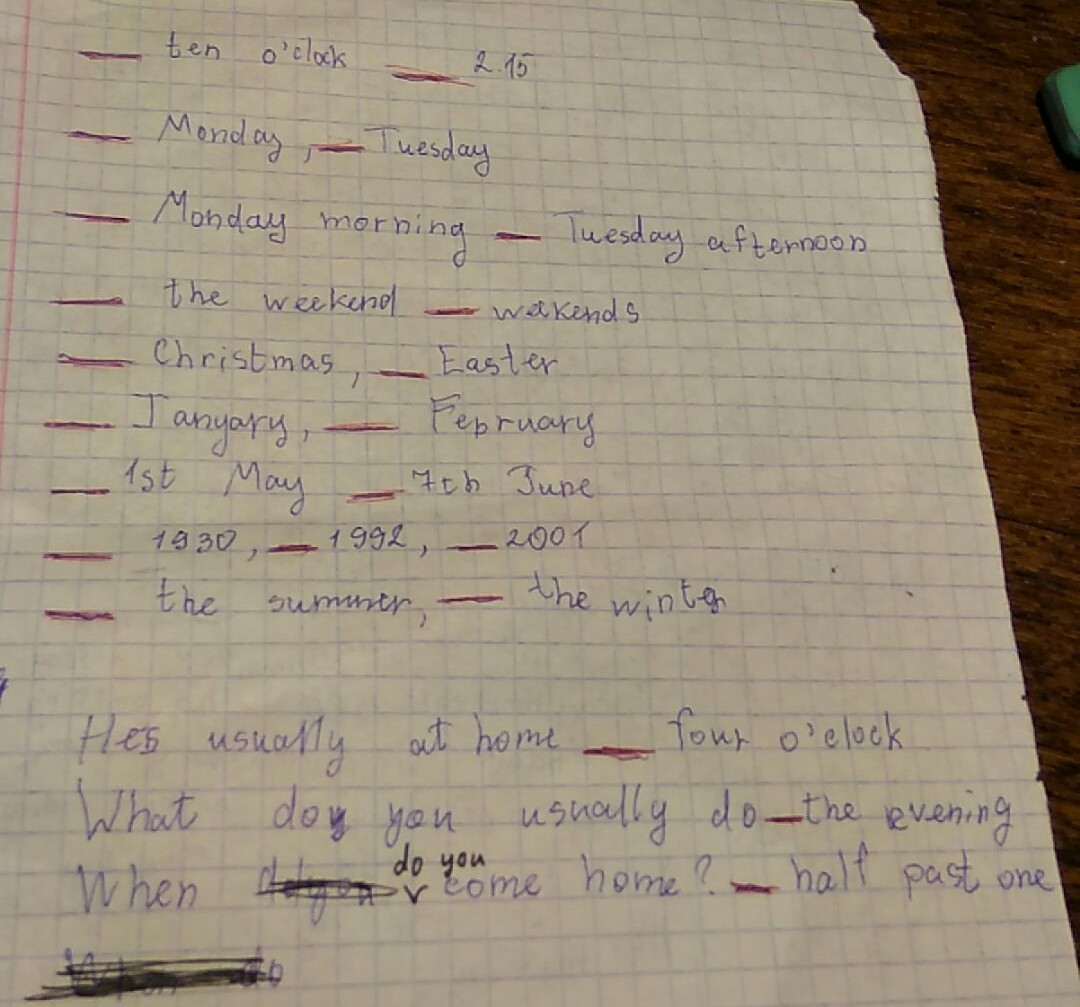 __ ten o'clock __ 2.15
__ Monday, __ Tuesday
__ Monday morning __ Tuesday afternoon
__ the weekend __ weekends
__ Christmas, __ Easter
__ Janyary, __ February
__ 1st May __ 7th June
__ 1930, __ 1992, __ 2001
__ the summer, __ the winter
Hes usually at home __ four o'clock
What do you usually do __ the evening
do you
When come home? __ half past one